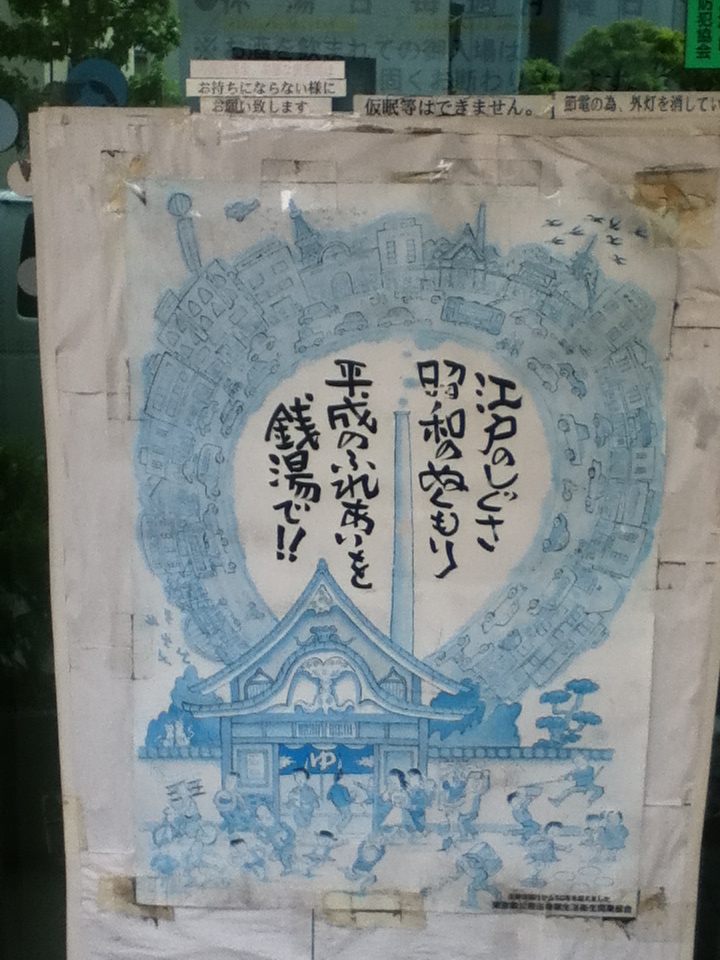 休湯日毎週月曜日
お待ちにならない様に
お願い致します
仮眠等はできません。
節電の為、外灯を消してい
防犯協会
江戸のしぐさ
昭和のぬくもり
平成のふれあいを
銭湯で!!
ゆ